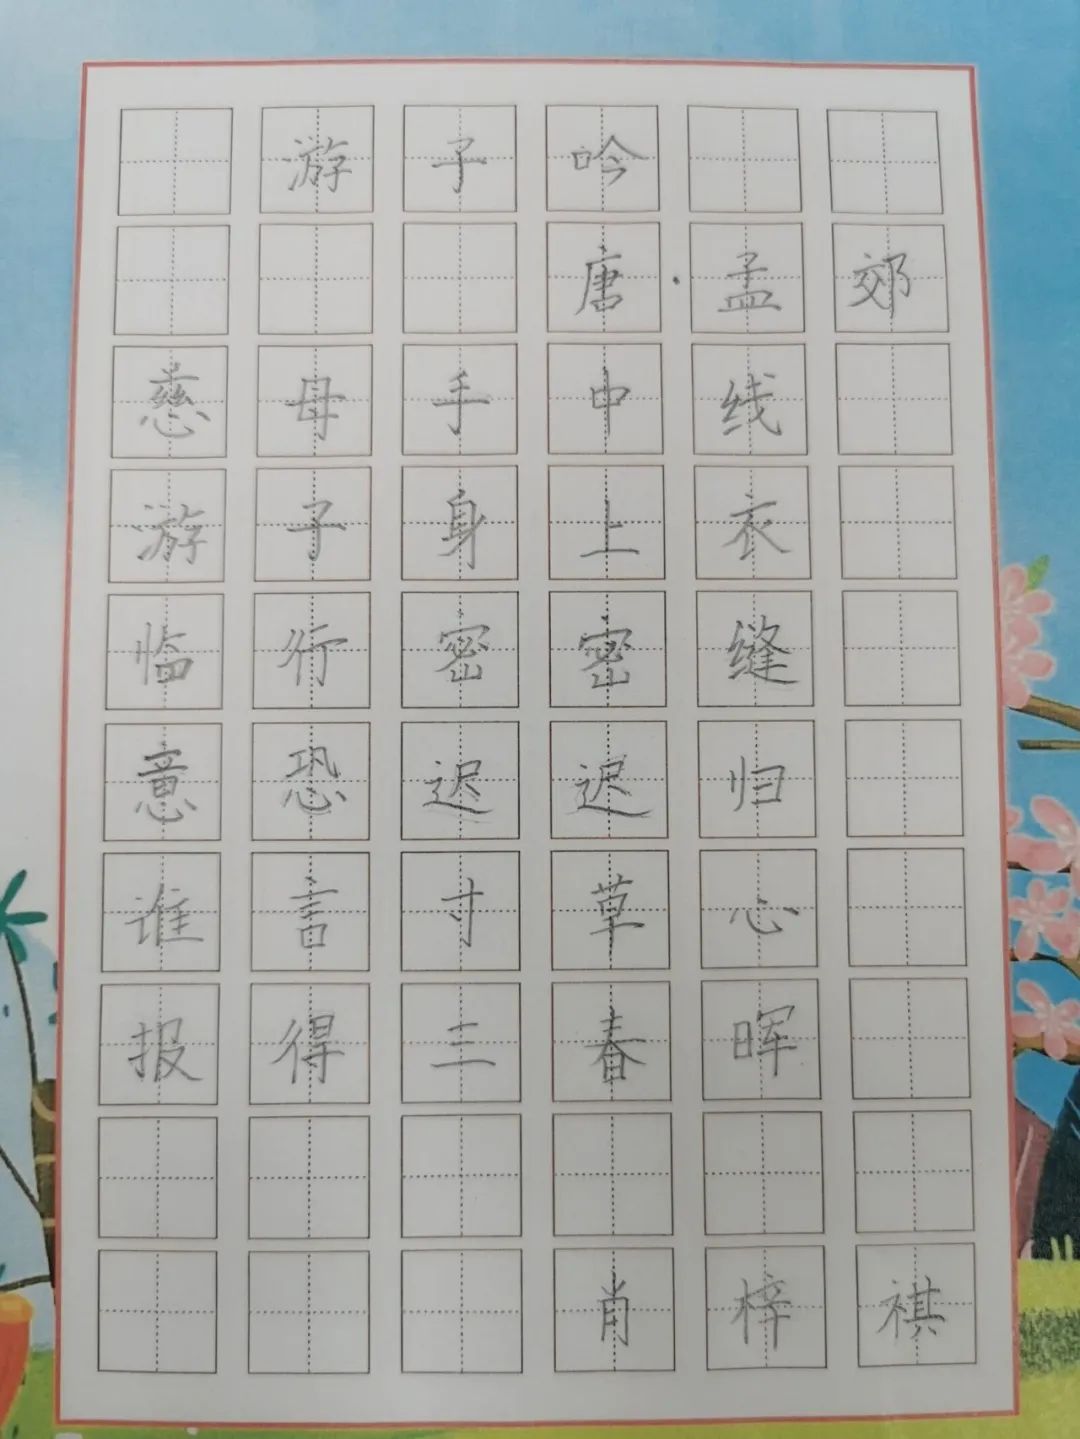 游子吟
唐·孟郊
慈母手中线
游子身上衣
临行密密缝
意恐迟迟归
谁言寸草心
报得三春晖
肖梓祺